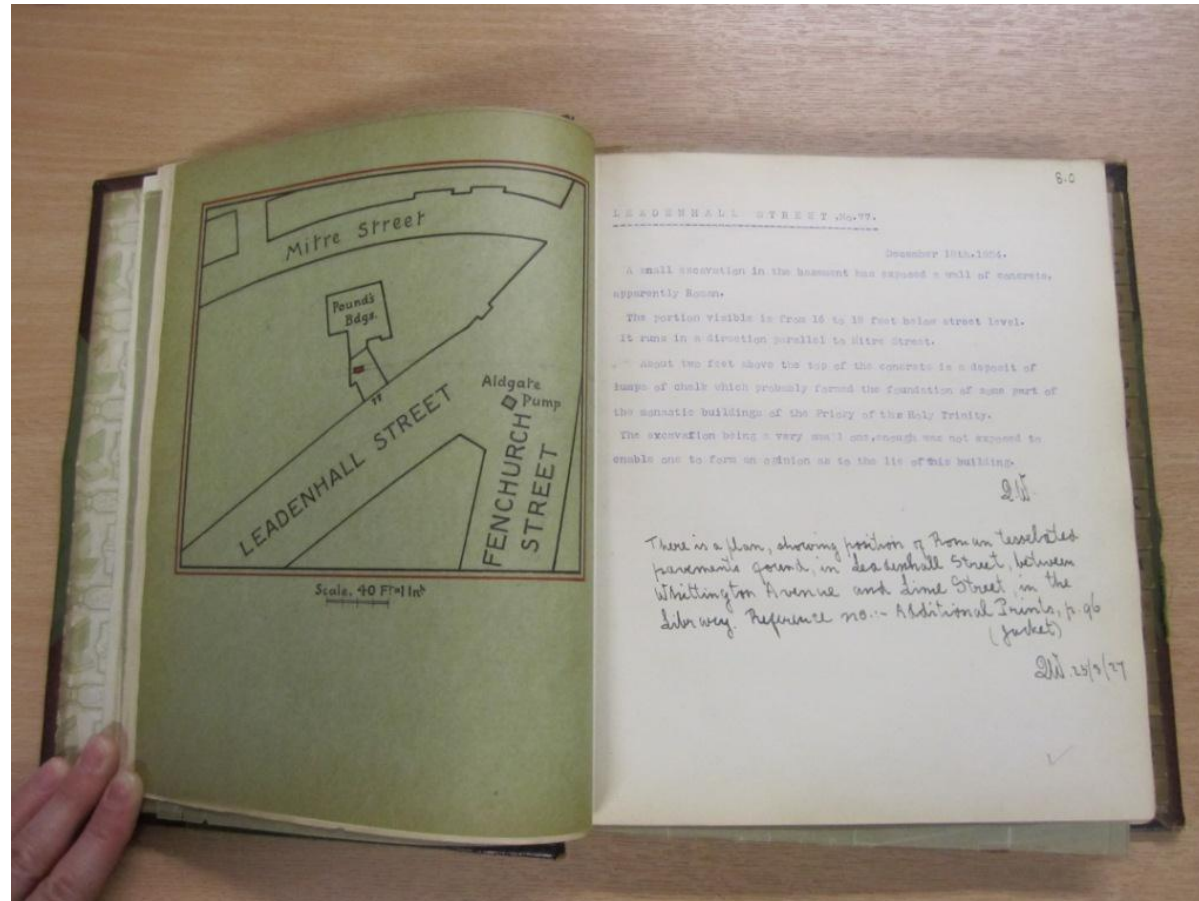 Mitre Street
Pound's
Bdgs.
77
Aldgate
Pump
LEADENHALL STREET
FENCHURCH
STREET
Scale, 40 Ft=1 Inh
80
LEADENHALL STREET .No.77.
December 18th.1924.
A small excavation in the basement has exposed a wall of concrete,
apparently Roman.
The portion visible is from 16 to 19 feet below street level.
it runs in a direction parallel to Mitre Street.
About two feet above the top of the concrete is a deposit of
lumps of chalk which probably formed the foundation of some part of
the monastic buildings of the Priory of the Holy Trinity.
The excavation being a very small one,enough was not exposed to
enable one to form an opinion as to the lie of this building.
QW.
There is a plan, showing position of Roman tessellated
pavements found, in Leadenhall Street, between
Whittington Avenue and Lime Street, in the
Library. Reference no.:- Additional Prints, p.96
(Jacket)
QW. 25/3/27